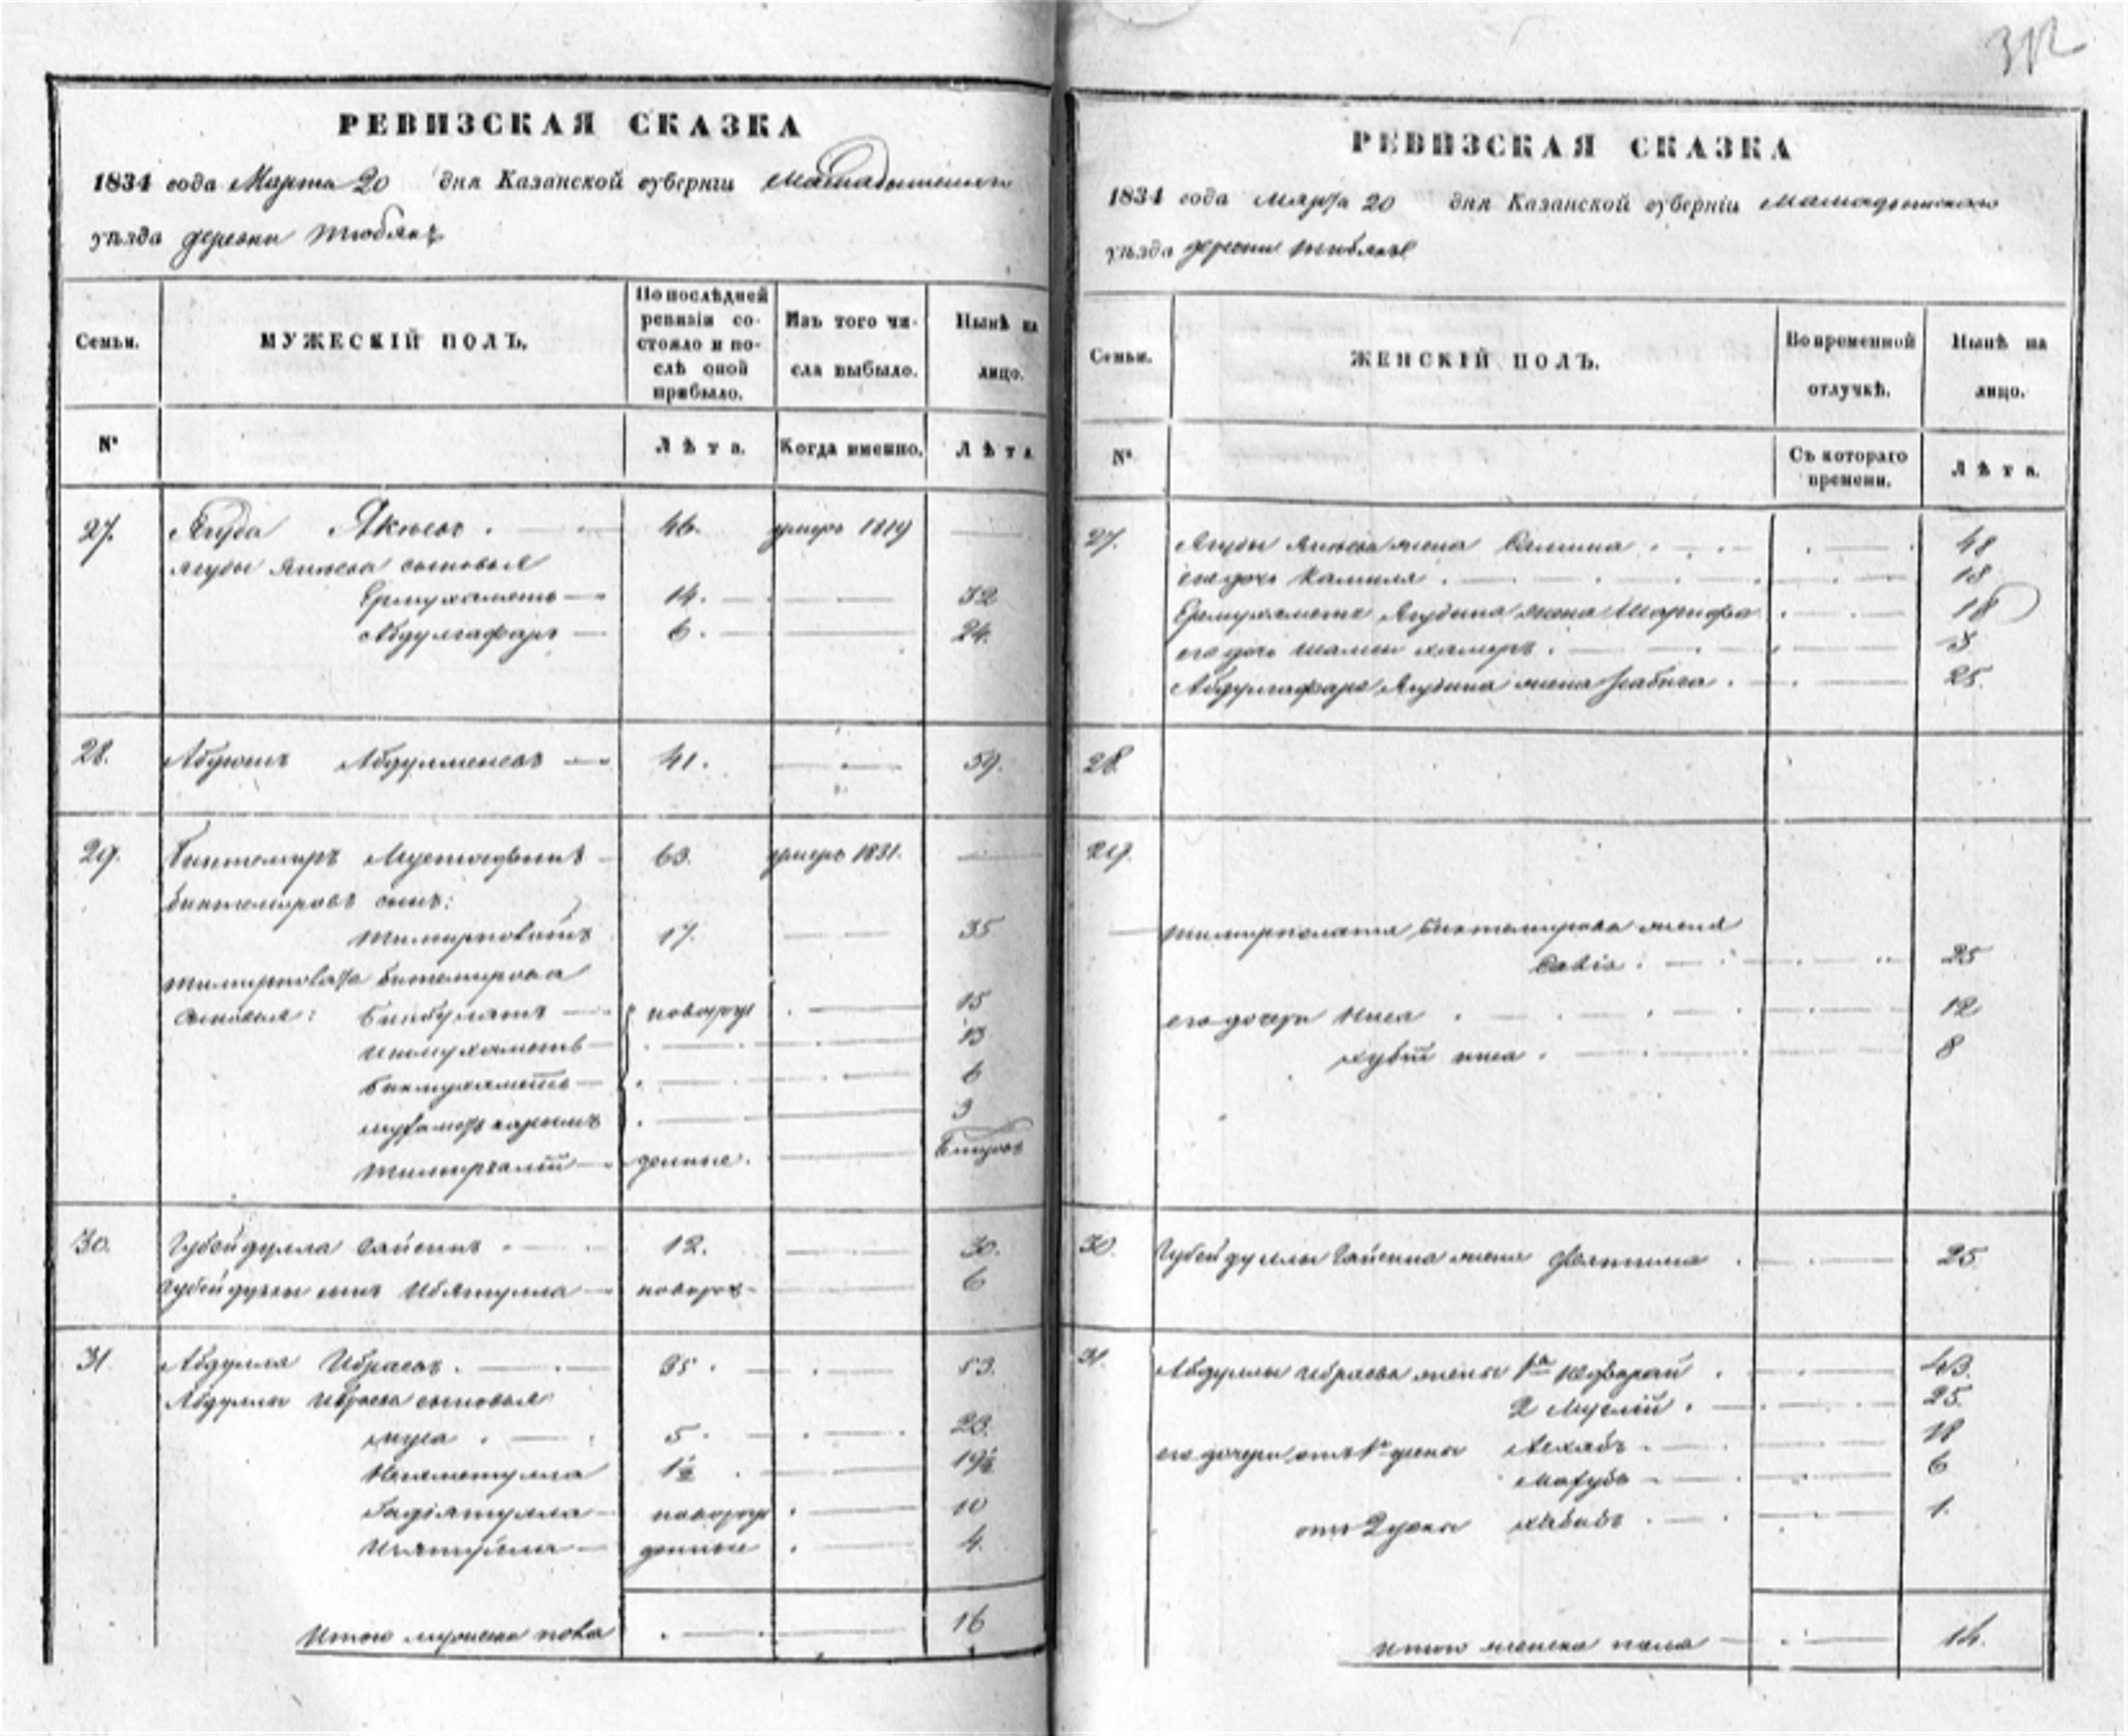 312
РЕВИЗСКАЯ СКАЗКА
1834 года Марта 20 дня Казанской губерніи Мамадышскаго
уѣзда деревни Тюбяк
Семьи.
МУЖЕСКІЙ ПОЛЪ.
По послѣдней ревизіи состояло и послѣ оной прибыло.
Изъ того числа выбыло.
Нынѣ на лицо.
№
Лѣта.
Когда именно.
Лѣта
27. Ягуда Якѣевъ 46. умеръ 1819
Ягуды Якѣева сыновья
Ермухаметъ 14. 32
Абдулгафаръ 6. 24.
28. Абдулменевъ 41. 59.
29. Биктемиръ 63. умеръ 1831.
Биктемировъ сынъ:
17. 35
Биктемирова
сыновья: Бикбулатъ новорож 15
Ишмухаметъ 13
Бикмухаметъ 6
3
Тимиргалій денные.
30. Губейдулла Сайтинъ 12. 30.
Губейдуллы сынъ Ибятулла новорож 6
31. Абдулла Ибраевъ 35. 53.
Абдуллы Ибраева сыновья
Муса 5. 23.
Неяметулла 1½ 19½
Гадіятулла новорож 10
денные 4.
Итого мужеска пола 16
РЕВИЗСКАЯ СКАЗКА
1834 года Марта 20 дня Казанской губерніи Мамадышскаго
уѣзда деревни
Семьи.
ЖЕНСКІЙ ПОЛЪ.
Во временной отлучкѣ.
Нынѣ на лицо.
№
Съ котораго времени.
Лѣта.
27. Ягуды Якѣева жена Салима 48
его дочь Камиля 18
Ермухамета Ягудина жена Шарифа 18
его дочь 3
Абдулгафара Ягудина жена Рабига 25.
28.
29.
Биктемирова жена
Сабіа 25
его дочери Ниса 12
ниса 8
30. Губейдуллы Сайтина жена Фатима 25
31. Абдуллы Ибраева жены 1я 43.
2 25.
его дочери отъ 1й жены 18
Мафуба 6
отъ 2 жены Хабиба 1.
Итого женска пола 14.